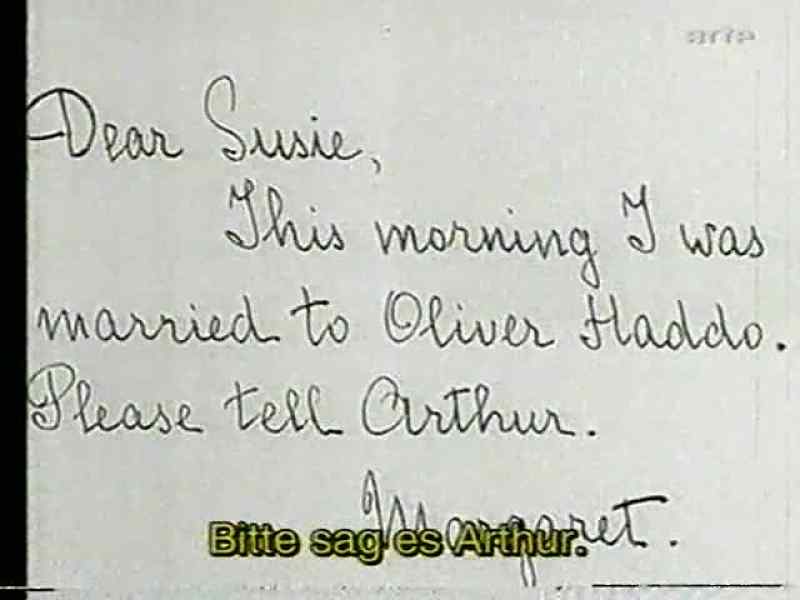 arte
Dear Susie,
This morning I was
married to Oliver Haddo.
Please tell Arthur.
Margaret.
Bitte sag es Arthur.